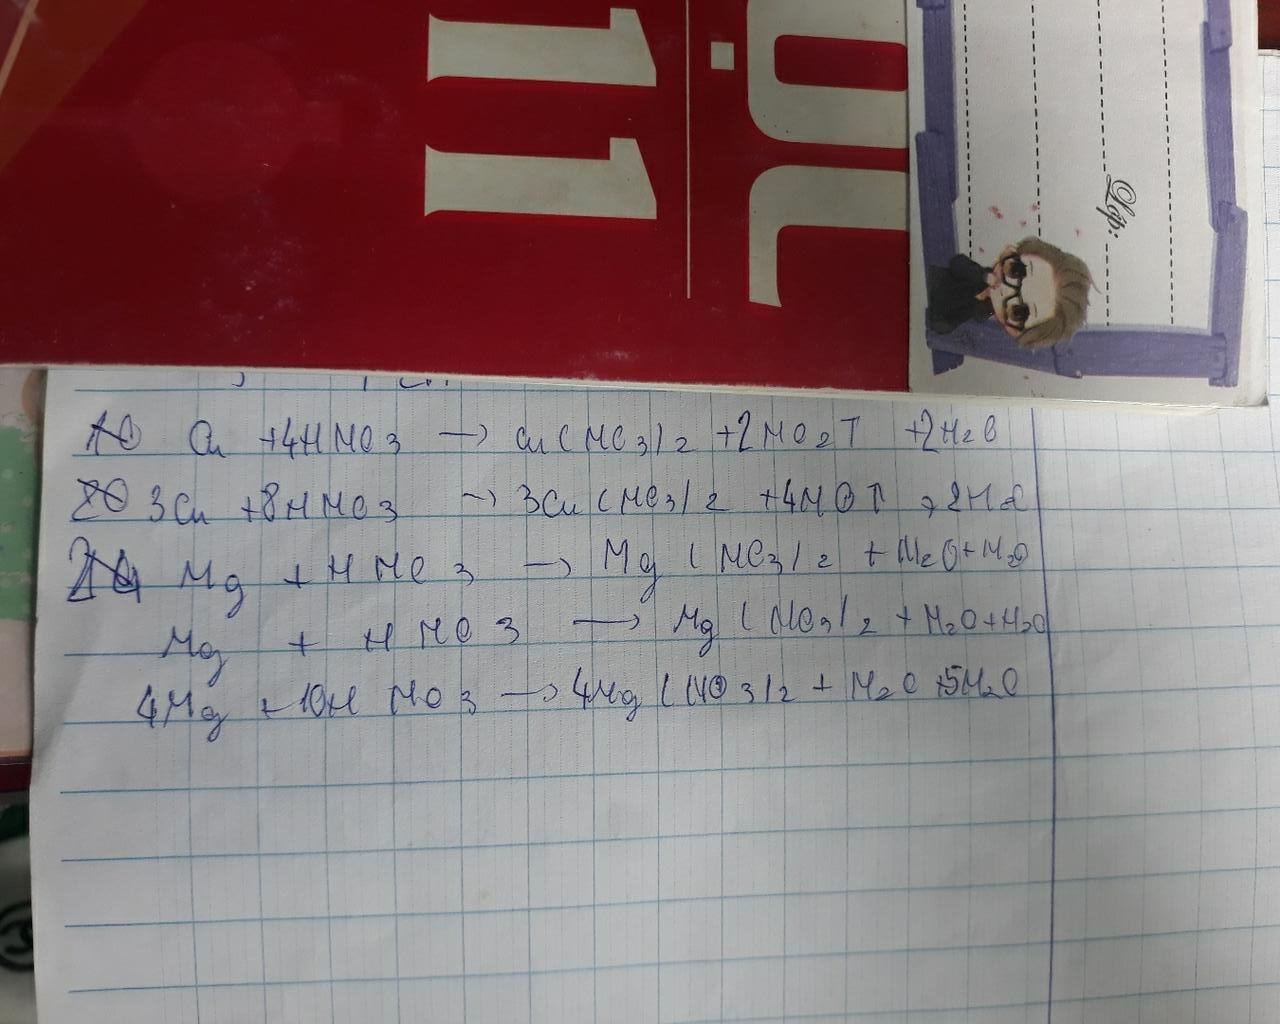 11
Lớp:
Cu + 4HNO3 → Cu(NO3)2 + 2NO2↑ + 2H2O
3Cu + 8HNO3 → 3Cu(NO3)2 + 4NO↑ + 2H2O
Mg + HNO3 → Mg(NO3)2 + N2O + H2O
Mg + HNO3 → Mg(NO3)2 + N2O + H2O
4Mg + 10HNO3 → 4Mg(NO3)2 + N2O + 5H2O